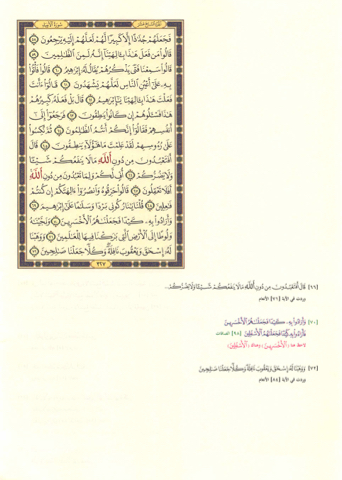 فَجَعَلَهُمْ جُذَٰذًا إِلَّا كَبِيرًا لَّهُمْ لَعَلَّهُمْ إِلَيْهِ يَرْجِعُونَ ٥٨
قَالُوا۟ مَن فَعَلَ هَٰذَا بِـَٔالِهَتِنَآ إِنَّهُۥ لَمِنَ ٱلظَّٰلِمِينَ ٥٩
قَالُوا۟ سَمِعْنَا فَتًى يَذْكُرُهُمْ يُقَالُ لَهُۥٓ إِبْرَٰهِيمُ ٦٠ قَالُوا۟ فَأْتُوا۟
بِهِۦ عَلَىٰٓ أَعْيُنِ ٱلنَّاسِ لَعَلَّهُمْ يَشْهَدُونَ ٦١ قَالُوٓا۟ ءَأَنتَ
فَعَلْتَ هَٰذَا بِـَٔالِهَتِنَا يَٰٓإِبْرَٰهِيمُ ٦٢ قَالَ بَلْ فَعَلَهُۥ كَبِيرُهُمْ
هَٰذَا فَسْـَٔلُوهُمْ إِن كَانُوا۟ يَنطِقُونَ ٦٣ فَرَجَعُوٓا۟ إِلَىٰٓ
أَنفُسِهِمْ فَقَالُوٓا۟ إِنَّكُمْ أَنتُمُ ٱلظَّٰلِمُونَ ٦٤ ثُمَّ نُكِسُوا۟
عَلَىٰ رُءُوسِهِمْ لَقَدْ عَلِمْتَ مَا هَٰٓؤُلَآءِ يَنطِقُونَ ٦٥ قَالَ
أَفَتَعْبُدُونَ مِن دُونِ ٱللَّهِ مَا لَا يَنفَعُكُمْ شَيْـًٔا
وَلَا يَضُرُّكُمْ ٦٦ أُفٍّ لَّكُمْ وَلِمَا تَعْبُدُونَ مِن دُونِ ٱللَّهِ
أَفَلَا تَعْقِلُونَ ٦٧ قَالُوا۟ حَرِّقُوهُ وَٱنصُرُوٓا۟ ءَالِهَتَكُمْ إِن كُنتُمْ
فَٰعِلِينَ ٦٨ قُلْنَا يَٰنَارُ كُونِى بَرْدًا وَسَلَٰمًا عَلَىٰٓ إِبْرَٰهِيمَ ٦٩
وَأَرَادُوا۟ بِهِۦ كَيْدًا فَجَعَلْنَٰهُمُ ٱلْأَخْسَرِينَ ٧٠ وَنَجَّيْنَٰهُ
وَلُوطًا إِلَى ٱلْأَرْضِ ٱلَّتِى بَٰرَكْنَا فِيهَا لِلْعَٰلَمِينَ ٧١ وَوَهَبْنَا
لَهُۥٓ إِسْحَٰقَ وَيَعْقُوبَ نَافِلَةً وَكُلًّا جَعَلْنَا صَٰلِحِينَ ٧٢
٣٢٧
[٦٦] قَالَ أَفَتَعْبُدُونَ مِن دُونِ ٱللَّهِ مَا لَا يَنفَعُكُمْ شَيْـًٔا وَلَا يَضُرُّكُمْ..
[٧٠] وَأَرَادُوا۟ بِهِۦ كَيْدًا فَجَعَلْنَٰهُمُ ٱلْأَخْسَرِينَ
فَأَرَادُوا۟ بِهِۦ كَيْدًا فَجَعَلْنَٰهُمُ ٱلْأَسْفَلِينَ [٩٨] الصافات
[٧٢] وَوَهَبْنَا لَهُۥٓ إِسْحَٰقَ وَيَعْقُوبَ نَافِلَةً وَكُلًّا جَعَلْنَا صَٰلِحِينَ